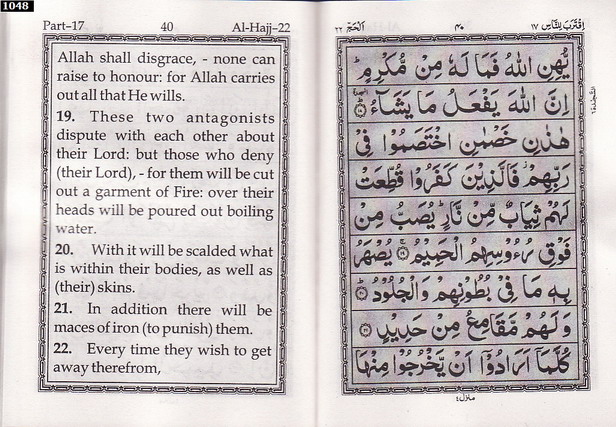 1048
Part–17 40 Al-Hajj–22
Allah shall disgrace, - none can
raise to honour: for Allah carries
out all that He wills.
19. These two antagonists
dispute with each other about
their Lord: but those who deny
(their Lord), - for them will be cut
out a garment of Fire: over their
heads will be poured out boiling
water.
20. With it will be scalded what
is within their bodies, as well as
(their) skins.
21. In addition there will be
maces of iron (to punish) them.
22. Every time they wish to get
away therefrom,
اقترب للناس ١٧ ٤٠ الحج ٢٢
يُّهِنِ اللّٰهُ فَمَا لَهٗ مِنْ مُّكْرِمٍ ؕ
اِنَّ اللّٰهَ يَفْعَلُ مَا يَشَآءُ
هٰذٰنِ خَصْمٰنِ اخْتَصَمُوْا فِىْ
رَبِّهِمْ فَالَّذِيْنَ كَفَرُوْا قُطِّعَتْ
لَهُمْ ثِيَابٌ مِّنْ نَّارٍ ؕ يُصَبُّ مِنْ
فَوْقِ رُءُوْسِهِمُ الْحَمِيْمُ ١٩ يُصْهَرُ
بِهٖ مَا فِىْ بُطُوْنِهِمْ وَالْجُلُوْدُ ٢٠
وَلَهُمْ مَّقَامِعُ مِنْ حَدِيْدٍ ٢١
كُلَّمَاۤ اَرَادُوْۤا اَنْ يَّخْرُجُوْا مِنْهَا